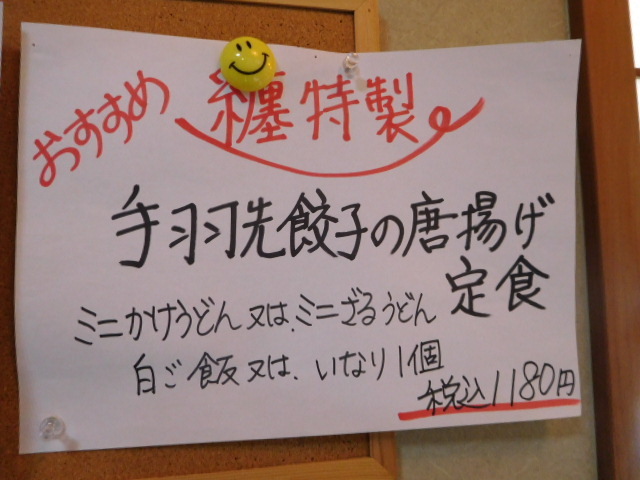 おすすめ 纏特製
手羽先餃子の唐揚げ
定食
ミニかけうどん又は、ミニざるうどん
白ご飯又は、いなり1個
税込1180円